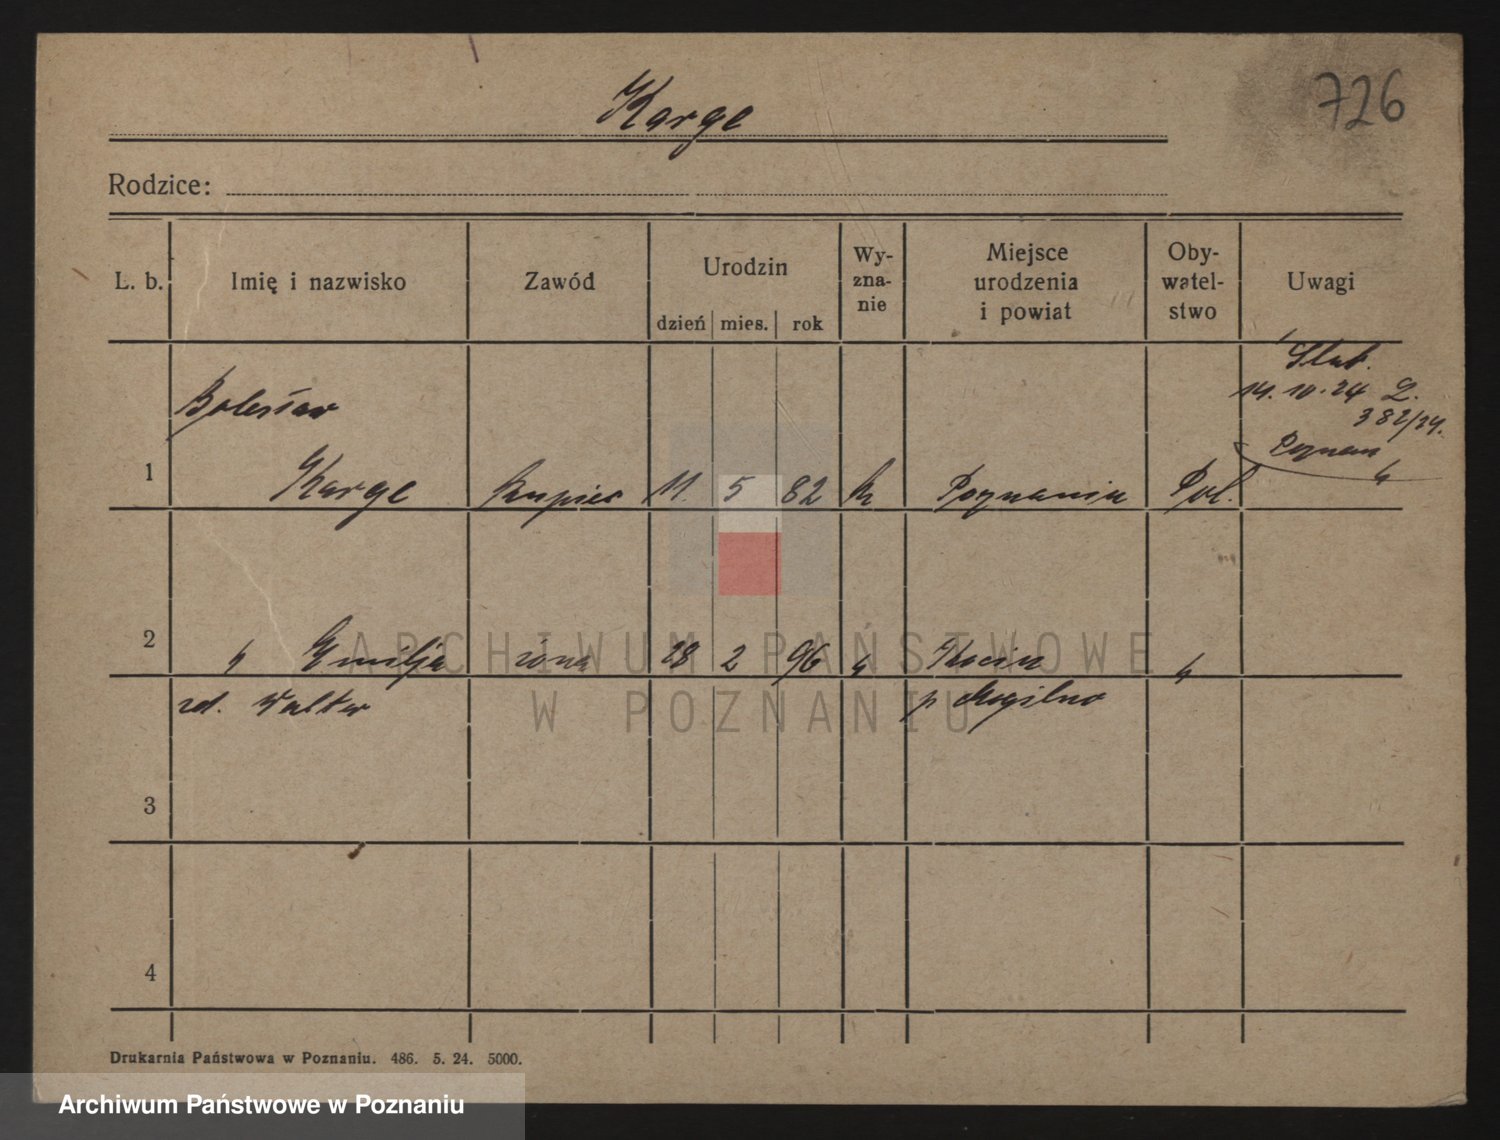 Karge
726
Rodzice:
L. b.
Imię i nazwisko
Zawód
Urodzin
dzień
mies.
rok
Wy-
zna-
nie
Miejsce
urodzenia
i powiat
Oby-
watel-
stwo
Uwagi
Ślub.
14. 10. 24
382/24.
Poznań
1
Bolesław
Karge
kupiec
11.
5
82
k
Poznaniu
Pol.
2
" Emilja
żona
28
2
96
"
"
zd. Walter
p Mogilno
3
4
Drukarnia Państwowa w Poznaniu. 486. 5. 24. 5000.
ARCHIWUM PAŃSTWOWE
W POZNANIU
Archiwum Państwowe w Poznaniu